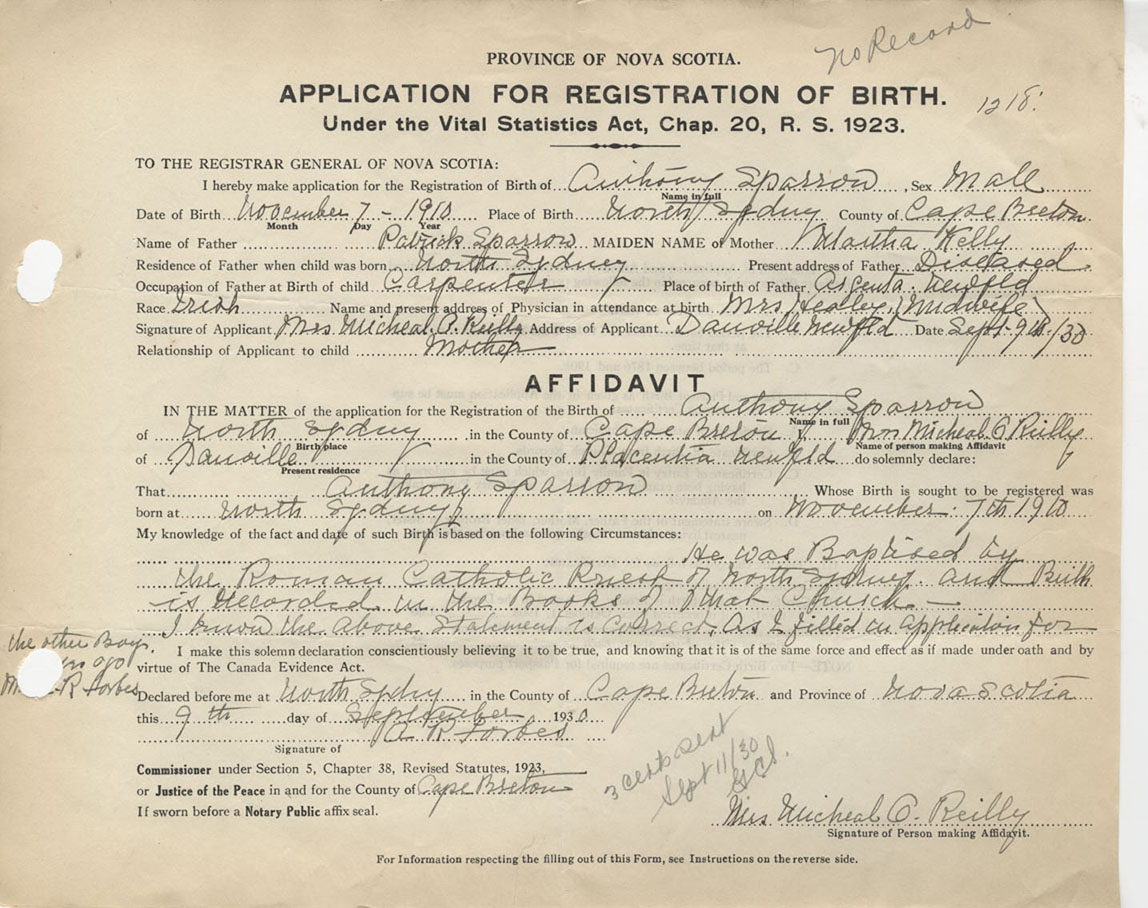 No Record
PROVINCE OF NOVA SCOTIA.
APPLICATION FOR REGISTRATION OF BIRTH. 1218.
Under the Vital Statistics Act, Chap. 20, R. S. 1923.
TO THE REGISTRAR GENERAL OF NOVA SCOTIA:
I hereby make application for the Registration of Birth of Anthony Sparrow, Sex Male
Name in full
Date of Birth November 7 - 1910 Place of Birth North Sydney County of Cape Breton
Month Day Year
Name of Father Patrick Sparrow MAIDEN NAME of Mother Martha Kelly
Residence of Father when child was born North Sydney Present address of Father Diseased
Occupation of Father at Birth of child Carpenter Place of birth of Father Argenta. Newfld
Race Irish Name and present address of Physician in attendance at birth Mrs Healey (Midwife)
Signature of Applicant Mrs Micheal O. Reilly Address of Applicant Danville Newfld Date Sept 9th/30
Relationship of Applicant to child Mother
AFFIDAVIT
IN THE MATTER of the application for the Registration of the Birth of Anthony Sparrow
Name in full
of North Sydney in the County of Cape Breton Mrs Micheal O Reilly
Birth place Name of person making Affidavit
of Danville in the County of Placentia Newfld do solemnly declare:
Present residence
That Anthony Sparrow Whose Birth is sought to be registered was
born at North Sydney on November 7th 1910
My knowledge of the fact and date of such Birth is based on the following Circumstances:
He was Baptised by
the Roman Catholic Priest of North Sydney. and Birth
is Recorded in the Books of that Church. —
I know the above Statement is correct. As I filled in application for
the other Boy.
ago
R Forbes
I make this solemn declaration conscientiously believing it to be true, and knowing that it is of the same force and effect as if made under oath and by
virtue of The Canada Evidence Act.
Declared before me at North Sydny in the County of Cape Breton and Province of Nova Scotia
this 9th day of September 1930
A R Forbes
Signature of
Commissioner under Section 5, Chapter 38, Revised Statutes, 1923,
or Justice of the Peace in and for the County of Cape Breton
If sworn before a Notary Public affix seal.
3 certs sent
Sept 11/30
Mrs Micheal O. Reilly
Signature of Person making Affidavit.
For Information respecting the filling out of this Form, see Instructions on the reverse side.